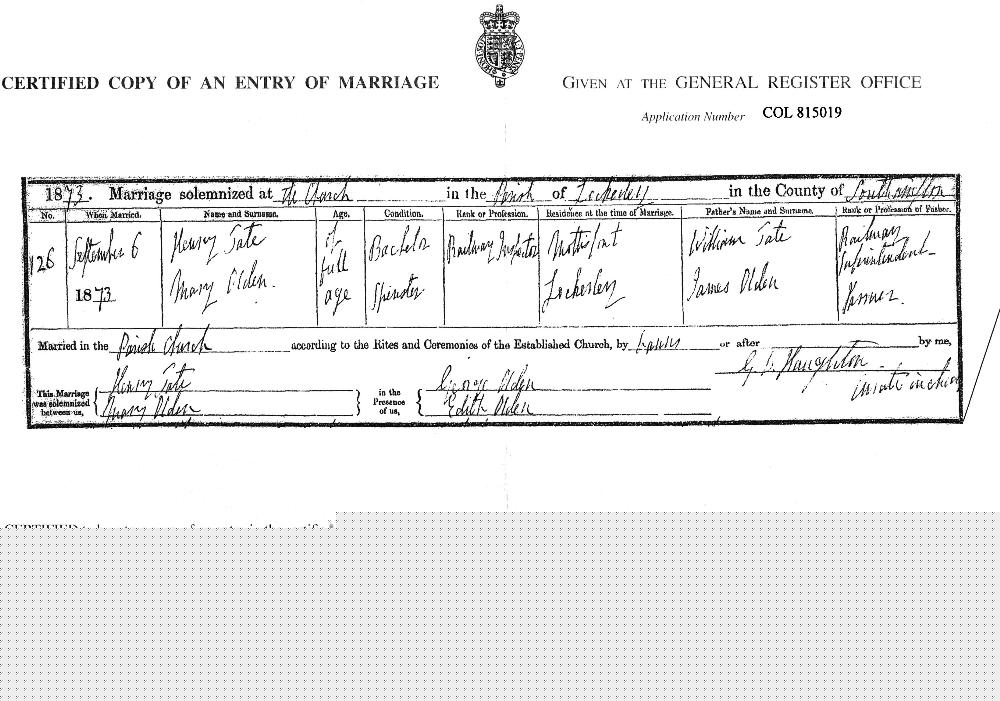 CERTIFIED COPY OF AN ENTRY OF MARRIAGE
GIVEN AT THE GENERAL REGISTER OFFICE
Application Number COL 815019
1873. Marriage solemnized at The Church in the Parish of Lockerley in the County of Southampton
No. When Married. Name and Surname. Age. Condition. Rank or Profession. Residence at the time of Marriage. Father's Name and Surname. Rank or Profession of Father.
126 September 6 1873
Henry Tate of full age Bachelor Railway Inspector Mottisfont William Tate Railway Superintendent
Mary Olden. Spinster Lockerley James Olden Farmer.
Married in the Parish Church according to the Rites and Ceremonies of the Established Church, by Banns or after by me,
G Haughton
This Marriage was solemnized between us, Henry Tate in the Presence of us, George Olden
Mary Olden Edith Olden